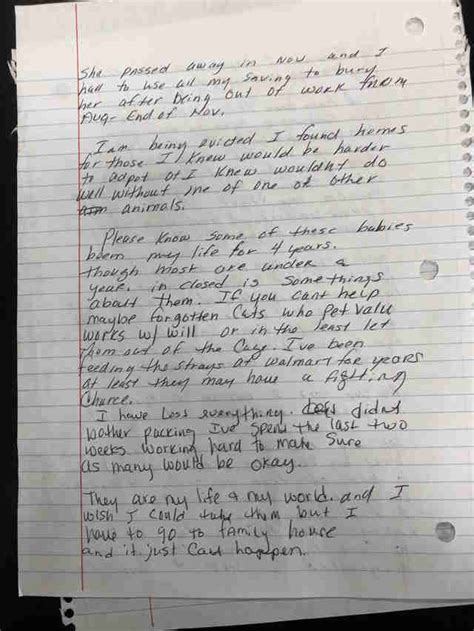 She passed away in Nov and I
had to use all my saving to bury
her after being out of work from
Aug- End of Nov.
I am being evicted I found homes
for those I knew would be harder
to adpot or I knew wouldnt do
well without one of one of other
animals.
Please know some of these babies
been my life for 4 years.
though most are under a
year. in closed is some things
about them. If you cant help
maybe forgotten Cats who Pet Value
works w/ will or in the least let
them out of the Cage. I've been
feeding the strays at Walmart for years
at least they may have a fighting
Chance.
I have Less everything. didnt
bother packing I've spend the last two
weeks working hard to make sure
as many would be okay.
They are my life & my world. and I
wish I could take them but I
have to go to family house
and it just Cant happen.